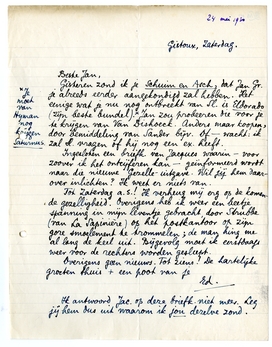 24 mei 1930
Gistoux, Zaterdag.
Beste Jan,
Gisteren zond ik je Schuim en Asch, dat Jan Gr.
je alreeds eerder aangekondigd zal hebben. Het
eenige wat je nu nog ontbreekt van Sl. is Eldorado
(zijn beste bundel). Jan zou probeeren die voor je
te krijgen van Van Dishoeck. Anders maar koopen,
door bemiddeling van Sander bijv. Of – wacht: ik
zal A. vragen of hij nog een ex. heeft.
"Je
moet
van
Hyman
nog
krijgen
Saturnus.
Ingesloten een briefk. van Jacques waarin – voor
zoover ik het ontcijferen kan – geïnformeerd wordt
naar die nieuwe Gezelle-uitgave. Wil jij hem daar-
over inlichten? Ik weet er niets van.
Tot Zaterdag a.s.! Ik verheug mij erg op de komen-
de gezelligheid. Overigens heb ik weer een beetje
spanning in mijn leventje gebracht door
(van La Sapinière) op het postkantoor op zijn
gore smoelement te trommelen; de man hing me
al lang de keel uit. Bijgevolg moet ik eerstdaags
weer voor de rechters worden gesleept.
Overigens geen nieuws. Tot ziens! De hartelijke
groeten thuis en een poot van je
Ik antwoord Jac. op deze briefk. niet meer. Leg
jij hem dus uit waarom ik jou dezelve zond.